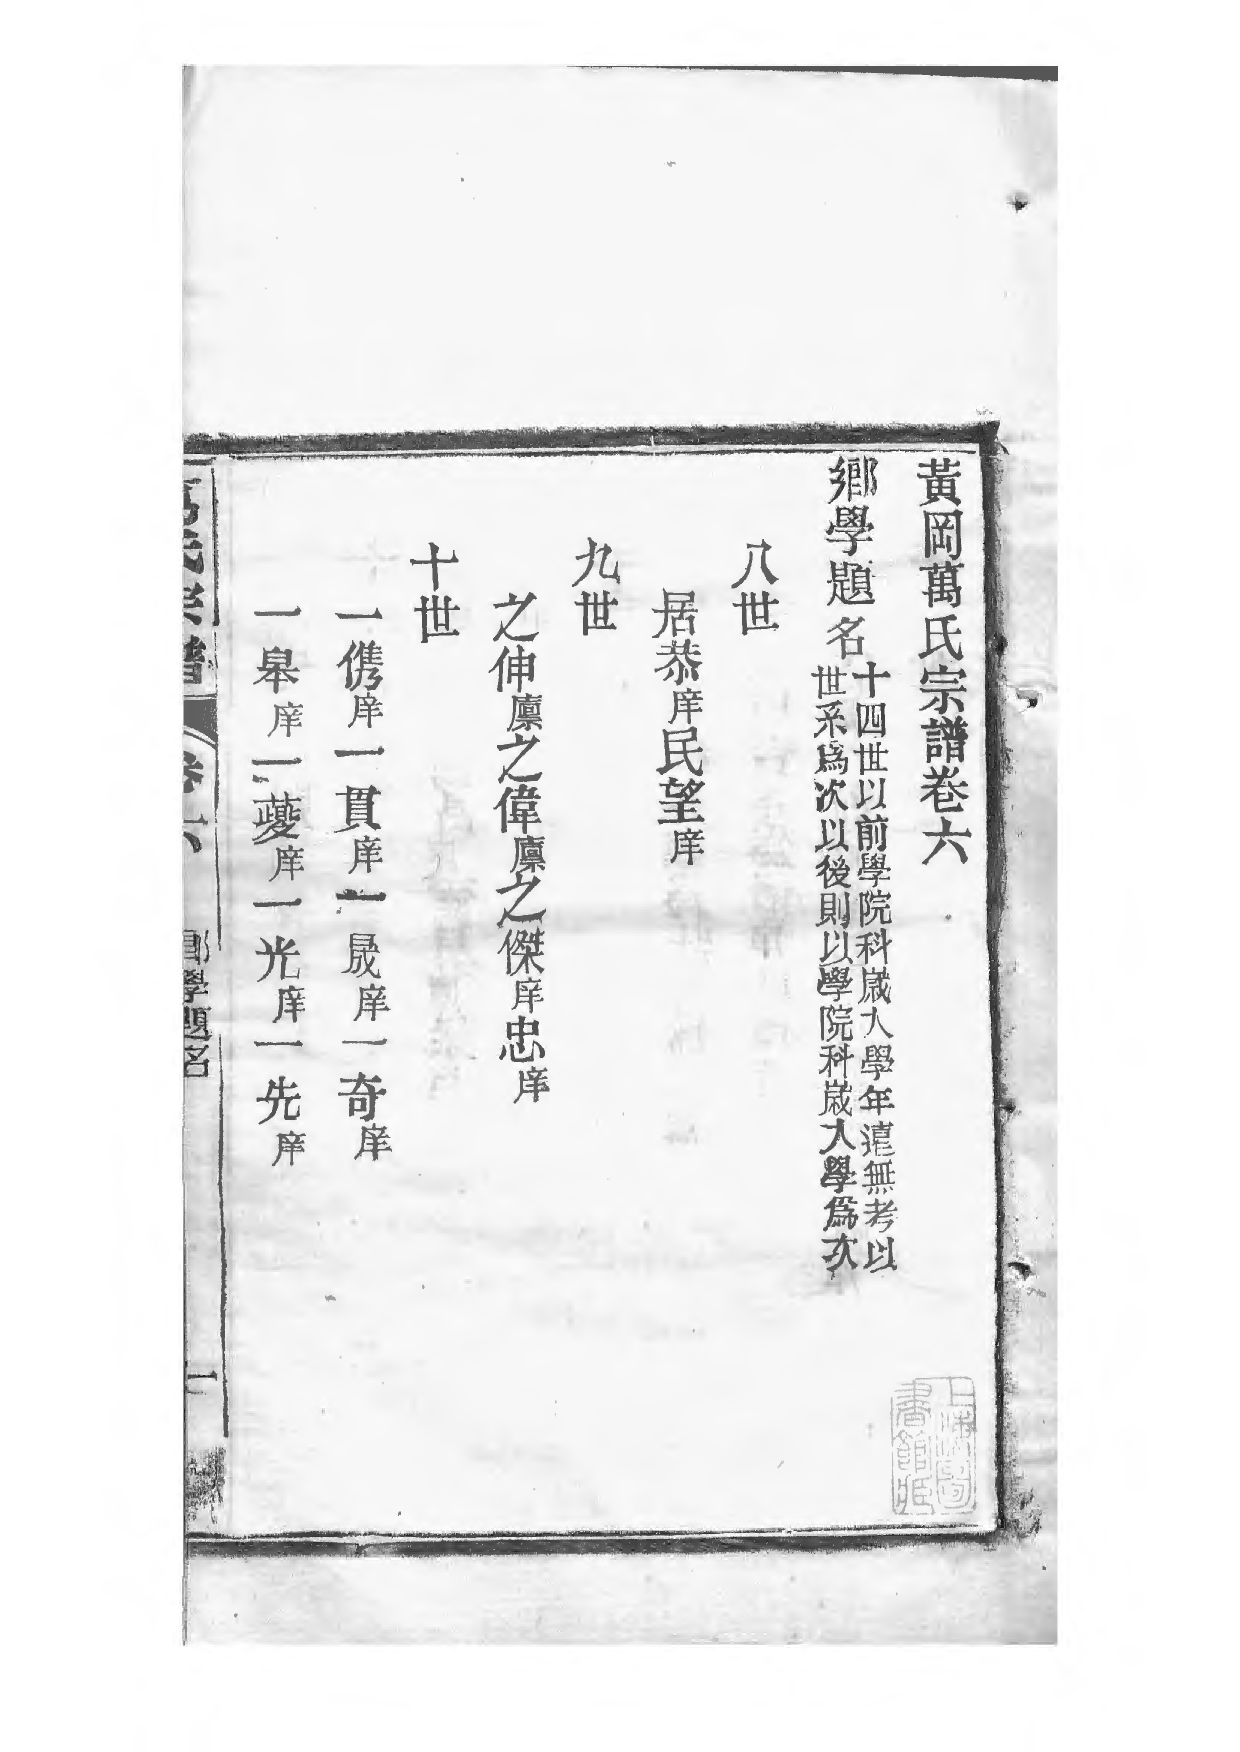 黃岡萬氏宗譜卷六
鄉學題名十四世以前學院科歲入學年遠無考以
世系爲次以後則以學院科歲入學爲次
八世
居恭庠民望庠
九世
之伸廩之偉廩之傑庠忠庠
十世
一儁庠一貫庠一晟庠一奇庠
一皋庠一夔庠一光庠一先庠
萬氏宗譜
卷六
鄉學題名
一
上海圖書館藏